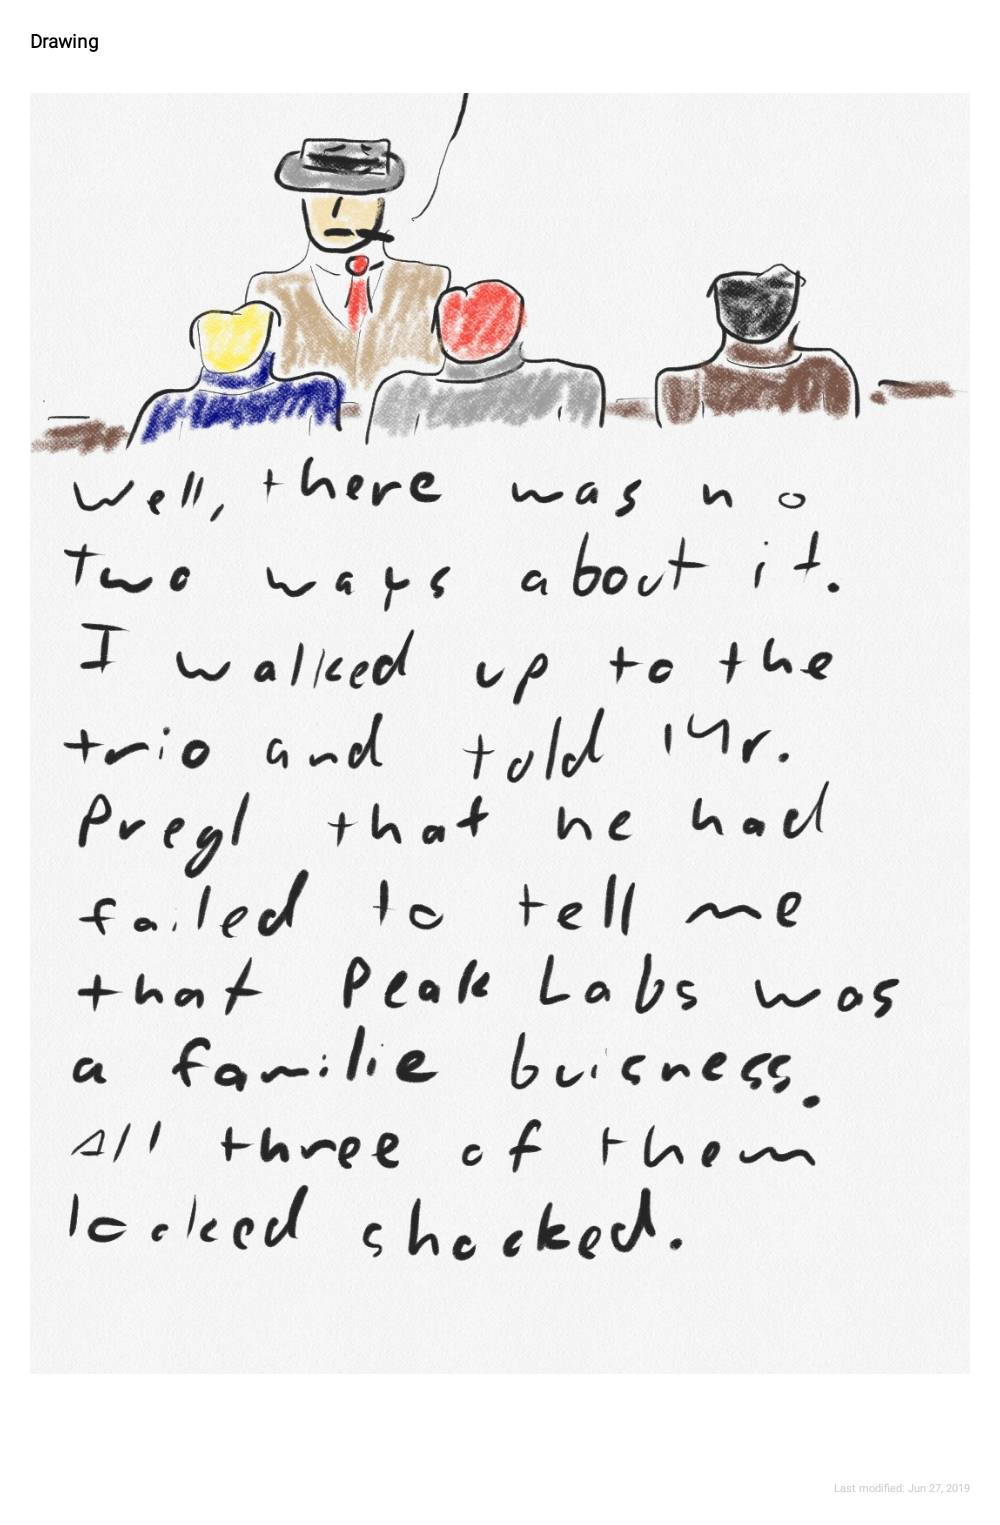 Drawing
Well, there was no
two ways about it.
I walked up to the
trio and told Mr.
Pregl that he had
failed to tell me
that Peak Labs was
a familie buisness.
All three of them
looked shocked.
Last modified: Jun 27, 2019